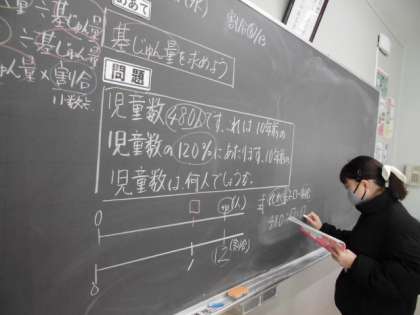 めあて
量÷基じゅん量
÷基じゅん量
基じゅん量を求めよう
じゅん量×割合
小数倍
問題
児童数480人です。これは10年前の
児童数の120%にあたります。10年前の
児童数は、何人でしょうか。
0 □ 480(人)
0 1 1.2(割合)